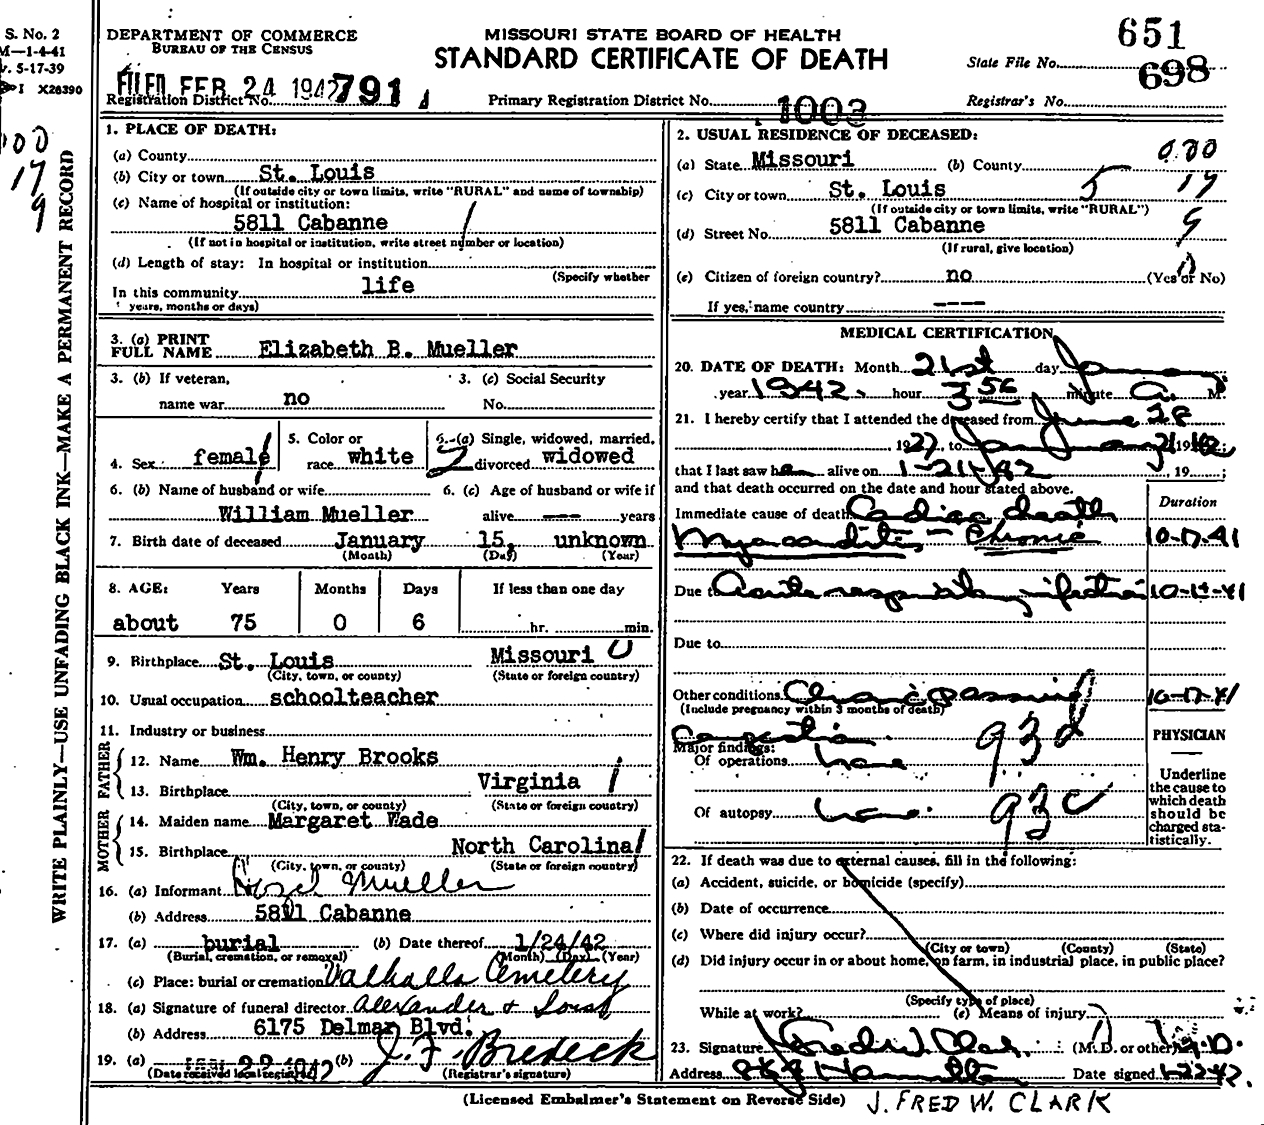 S. No. 2
M—1-4-41
v. 5-17-39
I X26390
DEPARTMENT OF COMMERCE
BUREAU OF THE CENSUS
MISSOURI STATE BOARD OF HEALTH
STANDARD CERTIFICATE OF DEATH
651
State File No.
698
FILED FEB 24 1942
Registration District No. 791
Primary Registration District No. 1003
Registrar's No.
100
17
9
WRITE PLAINLY—USE UNFADING BLACK INK—MAKE A PERMANENT RECORD
1. PLACE OF DEATH:
(a) County
(b) City or town St. Louis
(If outside city or town limits, write "RURAL" and name of township)
(c) Name of hospital or institution:
5811 Cabanne
(If not in hospital or institution, write street number or location)
(d) Length of stay: In hospital or institution
(Specify whether
In this community life
years, months or days)
3. (a) PRINT FULL NAME Elizabeth B. Mueller
3. (b) If veteran, name war no
3. (c) Social Security No.
4. Sex female
5. Color or race white
6. (a) Single, widowed, married, divorced widowed
6. (b) Name of husband or wife
William Mueller
6. (c) Age of husband or wife if alive --- years
7. Birth date of deceased January 15, unknown
(Month) (Day) (Year)
8. AGE: Years Months Days If less than one day
about 75 0 6 hr. min.
9. Birthplace St. Louis Missouri
(City, town, or county) (State or foreign country)
10. Usual occupation schoolteacher
11. Industry or business
FATHER
12. Name Wm. Henry Brooks
13. Birthplace Virginia
(City, town, or county) (State or foreign country)
MOTHER
14. Maiden name Margaret Wade
15. Birthplace North Carolina
(City, town, or county) (State or foreign country)
16. (a) Informant Mueller
(b) Address 5811 Cabanne
17. (a) burial (b) Date thereof 1/24/42
(Burial, cremation, or removal) (Month) (Day) (Year)
(c) Place: burial or cremation Valhalla Cemetery
18. (a) Signature of funeral director Alexander & Sons
(b) Address 6175 Delmar Blvd.
19. (a) 22 1942 (b) J. F. Bredeck
(Date received local registrar) (Registrar's signature)
2. USUAL RESIDENCE OF DECEASED:
(a) State Missouri (b) County
000
(c) City or town St. Louis
17
(If outside city or town limits, write "RURAL")
(d) Street No. 5811 Cabanne
9
(If rural, give location)
(e) Citizen of foreign country? no (Yes or No)
If yes, name country ----
MEDICAL CERTIFICATION
20. DATE OF DEATH: Month 21st day January
year 1942 hour 3 56 minute A. M.
21. I hereby certify that I attended the deceased from June 28
1927, to January 21 1942
that I last saw her alive on 1-21-42, 19 ;
and that death occurred on the date and hour stated above.
Duration
Immediate cause of death Cardiac death
Myocarditis - Chronic 10-17-41
Due to Acute respiratory infection 10-17-41
Due to
Other conditions Chronic passive 10-17-41
(Include pregnancy within 3 months of death)
congestion
93d
Major findings:
Of operations none
Of autopsy none
93c
PHYSICIAN
Underline the cause to which death should be charged statistically.
22. If death was due to external causes, fill in the following:
(a) Accident, suicide, or homicide (specify)
(b) Date of occurrence
(c) Where did injury occur?
(City or town) (County) (State)
(d) Did injury occur in or about home, on farm, in industrial place, in public place?
(Specify type of place)
While at work? (e) Means of injury
23. Signature J Fred W. Clark (M. D. or other) M.D.
Address Hamilton Date signed 1-22-42.
(Licensed Embalmer's Statement on Reverse Side)
J. FRED W. CLARK